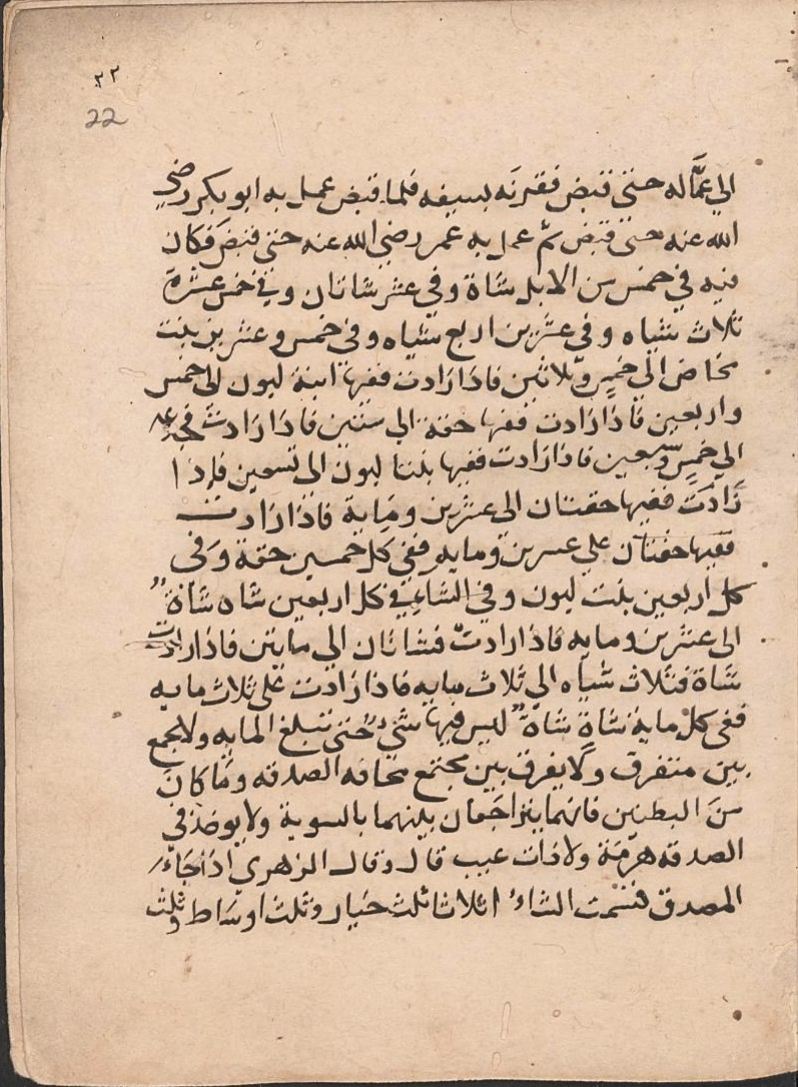 ٢٢
22
الي عمَّاله حتى قبض فقرنَه بسيفه فلما قبض عمل به ابو بكر رضي
الله عنه حتى قبض ثم عمل به عمر رضي الله عنه حتى قبضَ فكان
فيه في خمس من الابل شاة وفي عشر شاتان وفي خمس عشرة
ثلاث شياه وفي عشرين اربع شياه وفي خمس وعشرين بنت
مخاض الي خمسٍ وثلاثين فاذا زادت ففيها ابنة لبون الى خمس
واربعين فاذا زادت ففيها حقة الى ستين فاذا زادت
الي خمسٍ وسبعين فاذا زادت ففيها بنتا لبون الى تسعين فاذا
زَادَت ففيها حقتان الى عشرين ومَاية فاذا زادت
ففيها حقتان على عسرين ومايه ففي كل خمسين حقة وفى
كل اربعين بنت لبون وفي الشاءِ في كل اربعين شاه شاةٌ
الى عشرين ومايه فاذا زادت فشاتان الي مايتين فاذا زادت
شاة فثلاث شياه الي ثلاث مايه فاذا زادت على ثلاث مايه
ففى كل مايةٍ شاةٍ شاةٌ ليس فيها شيٌ حتى تبلغ المايه ولا يجمع
بين متفرق ولا يفرق بين مجتمع مخافه الصدقه ومَا كان
منَ البطنين فانهما يتراجَعان بينهما بالسوية ولا يوخذ في
الصدقه هرمَة ولا ذات عيب قال وقال الزهري اذا جَاءَ
المصدق قسمت الشاءُ اثلاثا ثلث خيار وثلث اوسَاط وثلث